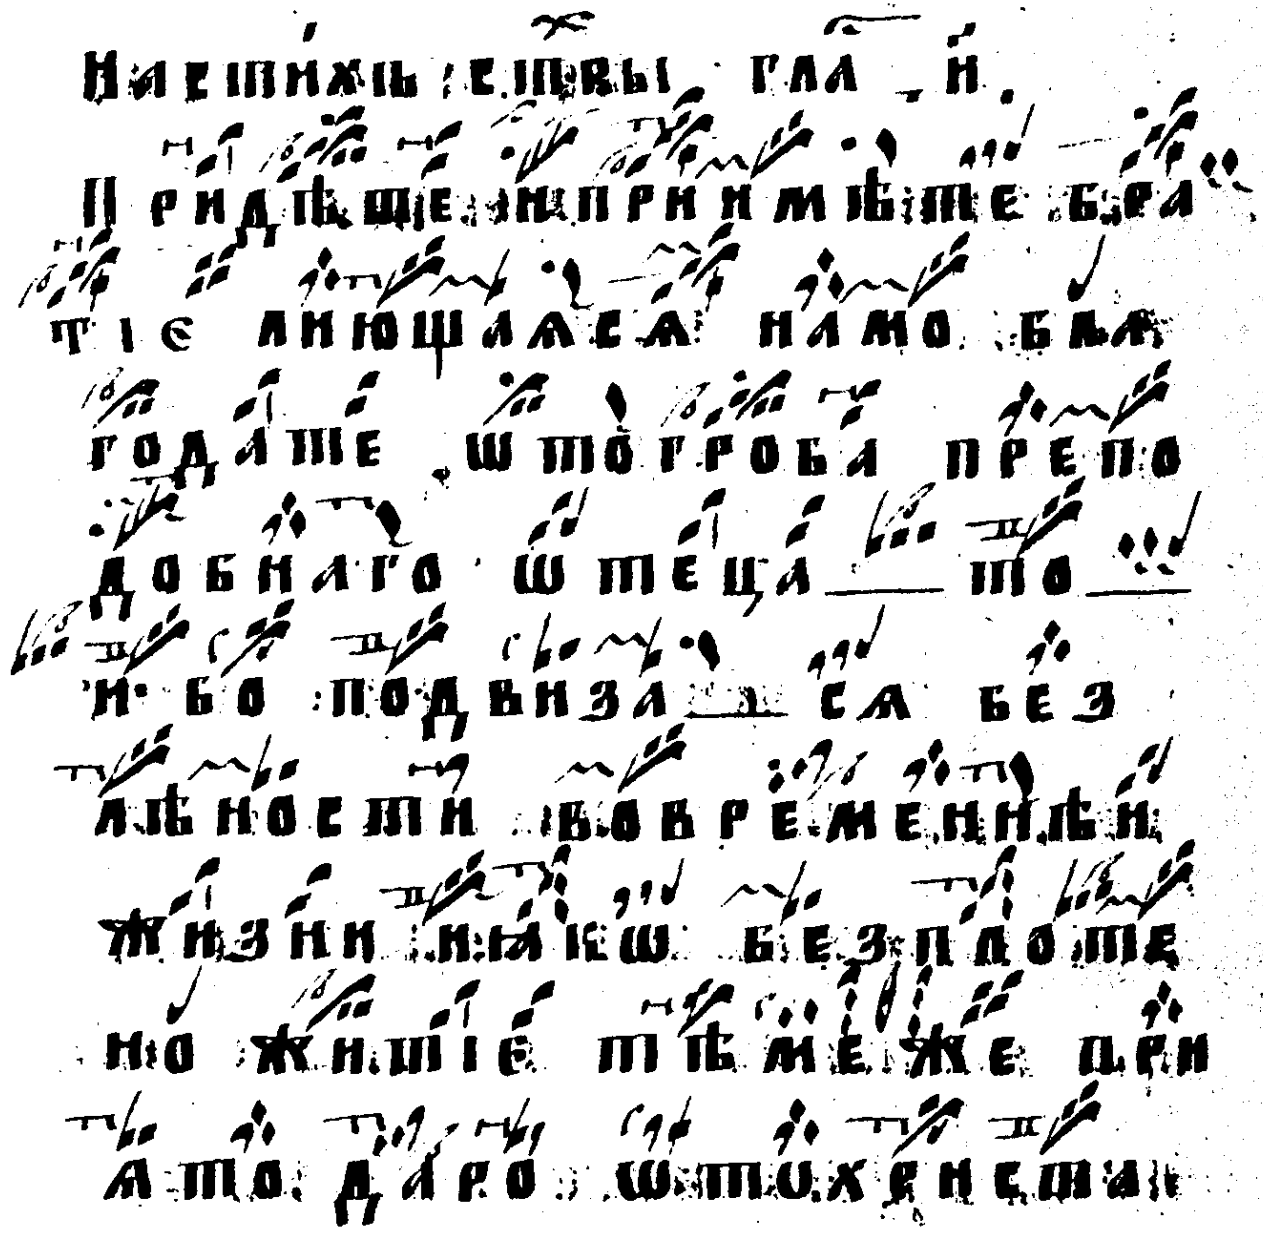 Настихѡ ств҃ы гла҃ и҃.
Придѣте и приимѣте бра
тїе ліющаяся намо бла
годате ѿто гроба препо
добнаго ѿтеца то
и бо подвиза ся без
лѣности вовременнѣи
жизни ияко безплоте
но житїе тѣмеже при
ято даро ѿто христа